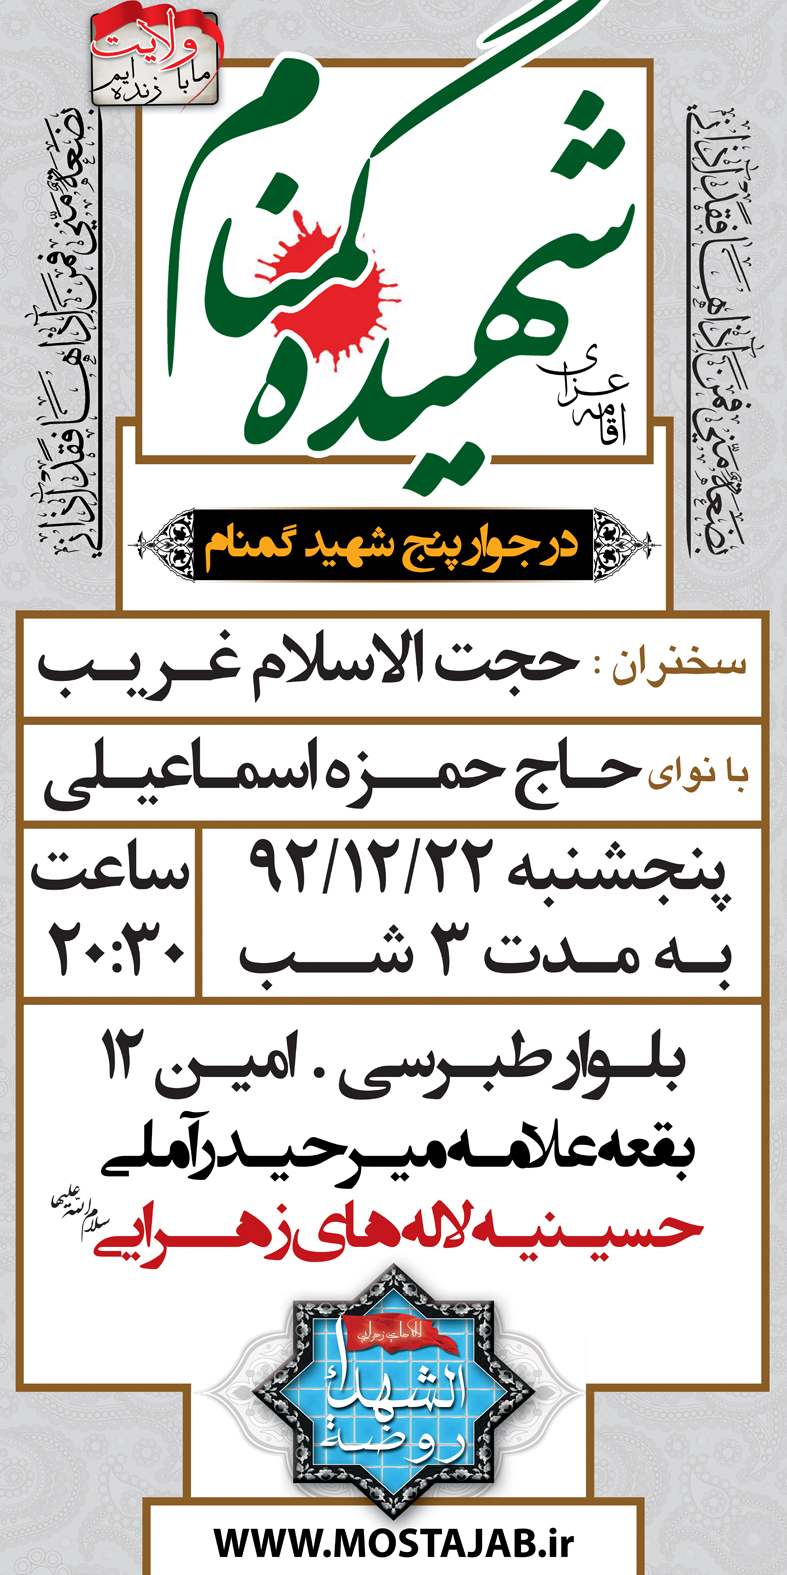 ما با ولایت زنده ایم
بضعة منی فمن آذاها فقد آذانی
بضعة منی فمن آذاها فقد آذانی
اقامه عزای
شهیده گمنام
در جوار پنج شهید گمنام
سخنران : حجت الاسلام غریب
با نوای حاج حمزه اسماعیلی
پنجشنبه ۹۲/۱۲/۲۲
به مدت ۳ شب
ساعت
۲۰:۳۰
بلوار طبرسی . امین ۱۲
بقعه علامه میر حیدر آملی
حسینیه لاله های زهرایی سلام الله علیها
لاله های زهرایی
روضة الشهداء
WWW.MOSTAJAB.ir